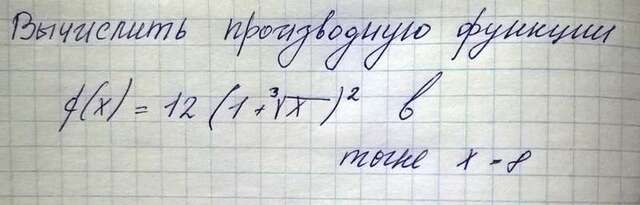 Вычислить производную функции
f(x) = 12 (1+∛x)² в
точке x = 8